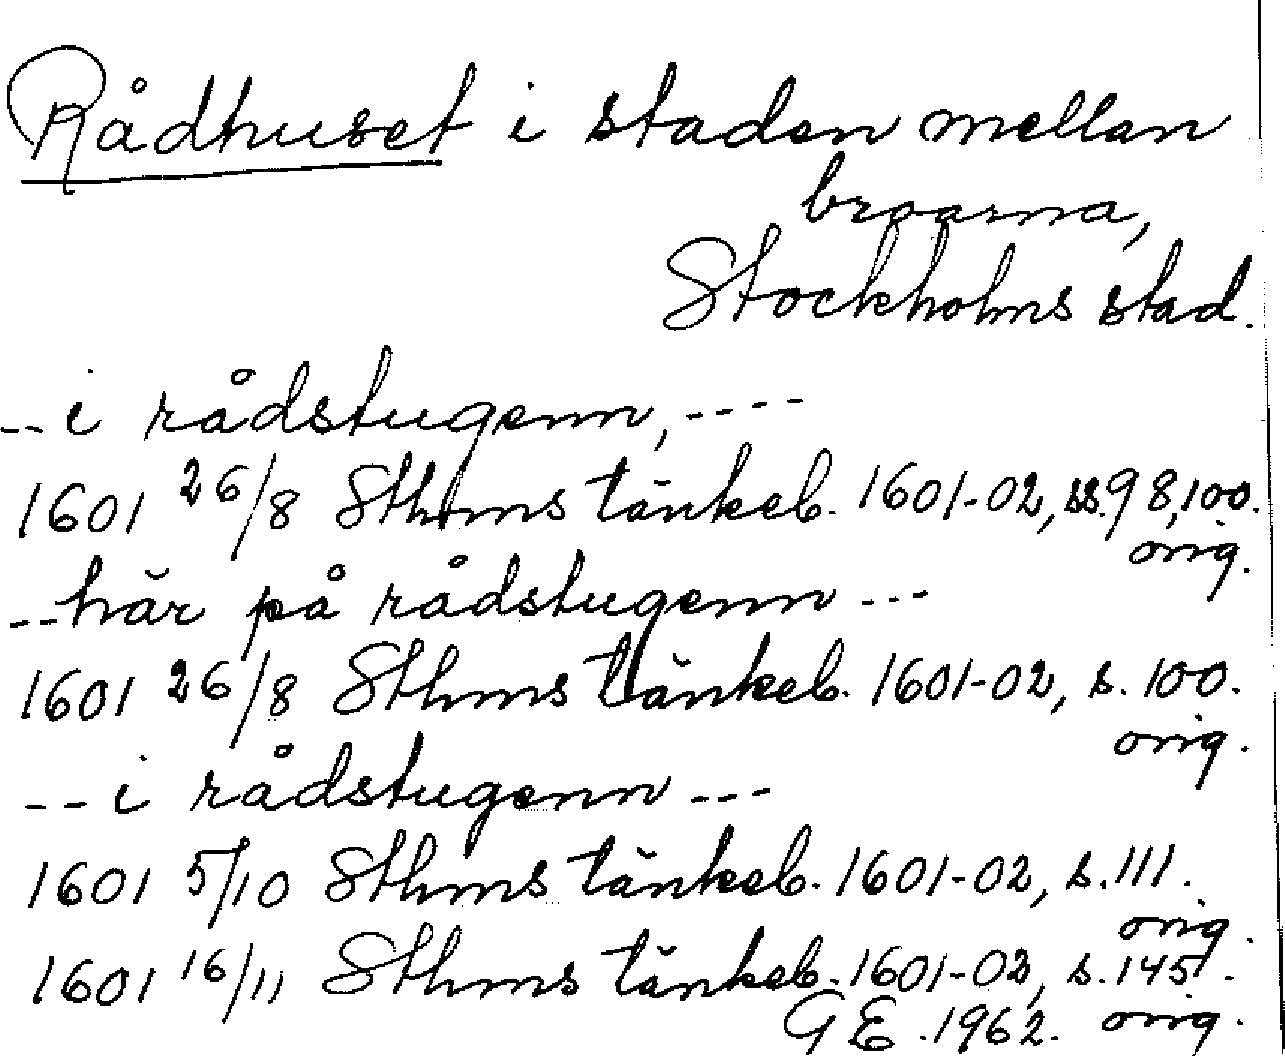 Rådhuset i staden mellan
broarna,
Stockholms stad.
-- i rådstugenn, ----
1601 26/8 Sthms tänkeb. 1601-02, ss. 98, 100.
orig.
-- här på rådstugenn ---
1601 26/8 Sthms tänkeb. 1601-02, s. 100.
orig.
-- i rådstugenn ---
1601 5/10 Sthms tänkeb. 1601-02, s. 111.
orig.
1601 16/11 Sthms tänkeb. 1601-02, s. 145.
GE. 1962. orig.